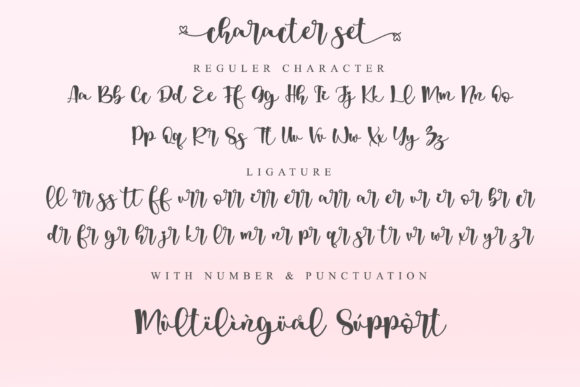 character set
REGULER CHARACTER
Aa Bb Cc Dd Ee Ff Gg Hh Ii Jj Kk Ll Mm Nn Oo
Pp Qq Rr Ss Tt Uu Vv Ww Xx Yy Zz
LIGATURE
ll rr ss tt ff urr orr irr err arr ar er ur ir or br cr
dr fr gr hr jr kr lr mr nr pr qr sr tr vr wr xr yr zr
WITH NUMBER & PUNCTUATION
Mûltïlìngüål Súppòrt